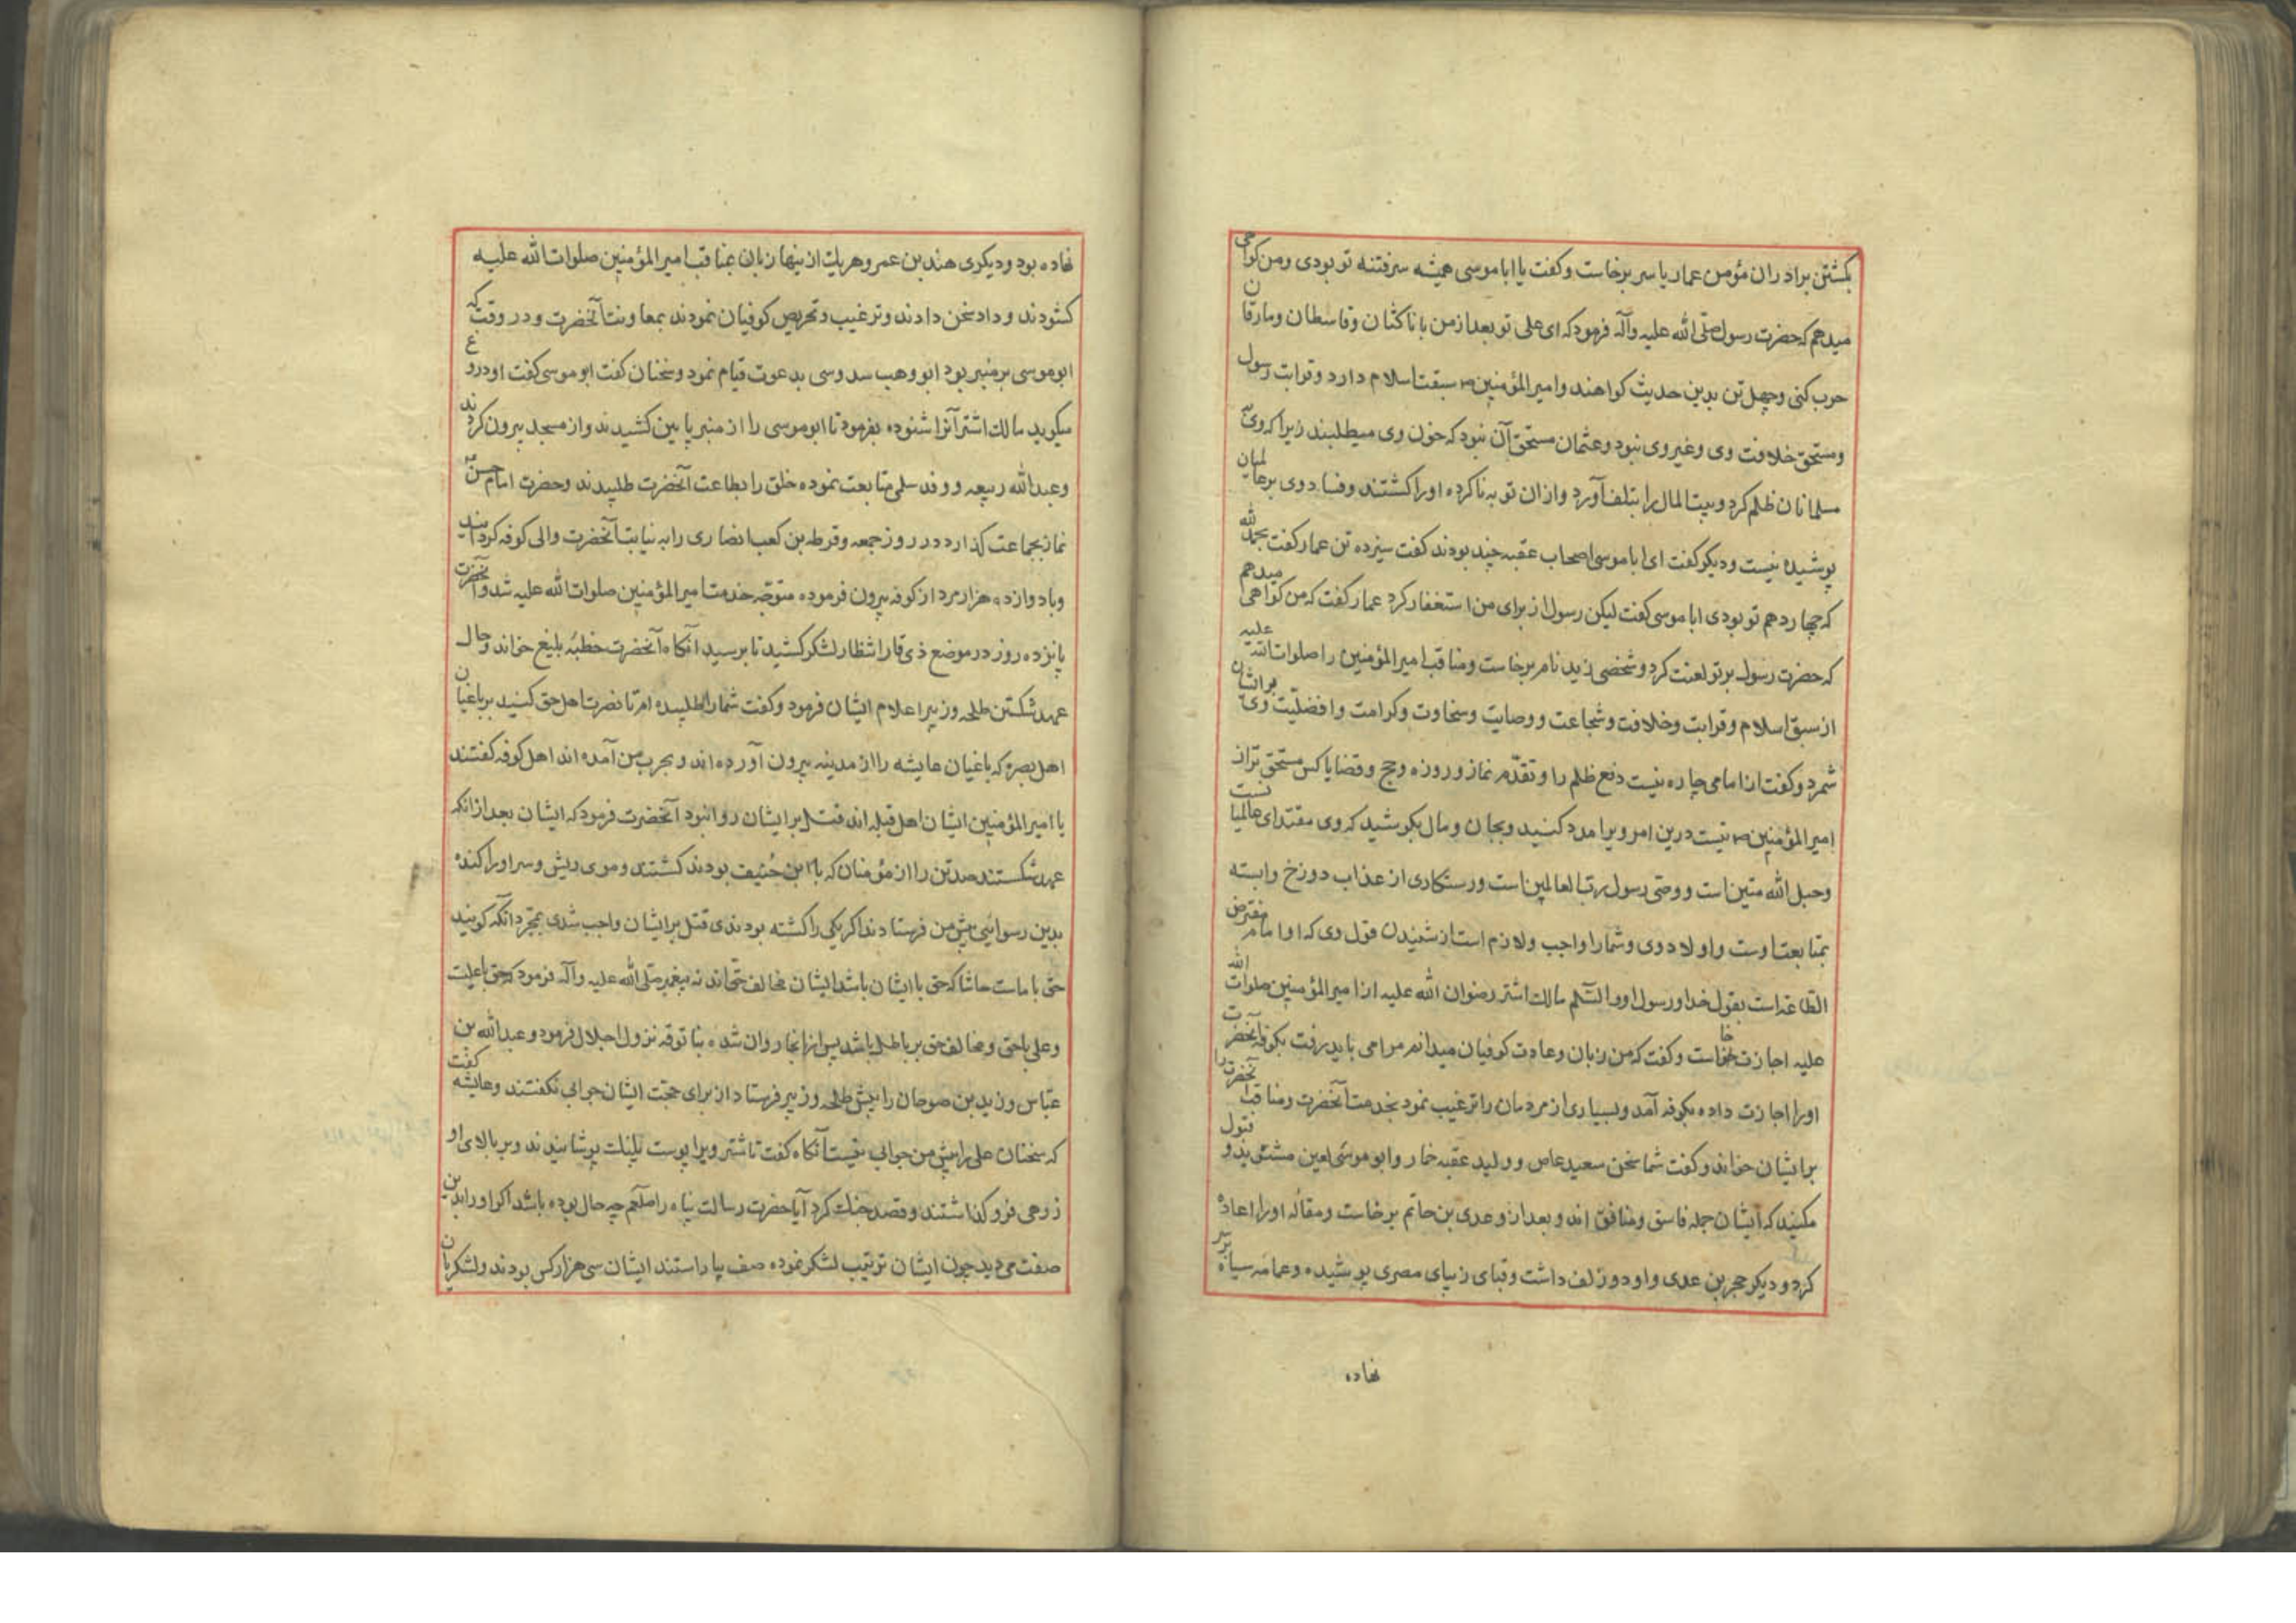 بکشتن برادران مؤمن عمار یاسر برخاست و کفت یا ابا موسی همیشه سرفتنه تو بودی و من کواهی
میدهم که حضرت رسول صلّی الله علیه وآله فرمود که ای علی تو بعد از من با ناکثان و قاسطان و مارقان
حرب کنی و چهل تن بدین حدیث کواهند و امیرالمؤمنین سبقت اسلام دارد و قرابت رسول
و مستحق خلافت وی و غیر وی نبود و عثمان مستحق آن نبود که خون وی میطلبند زیرا که وی بر
مسلمانان ظلم کرد و بیت المال را بتلف آورد و از ان توبه ناکرده او را کشتند و فساد وی بر عالمیان
پوشیده نیست و دیکر کفت ای ابا موسی اصحاب عقبه چند بودند کفت سیزده تن عمار کفت بحمدلله
که چهاردهم تو بودی ابا موسی کفت لیکن رسول از برای من استغفار کرد عمار کفت که من کواهی میدهم
که حضرت رسول بر تو لعنت کرد و شخصی زید نام برخاست و مناقب امیرالمؤمنین را صلوات الله علیه
از سبق اسلام و قرابت و خلافت و شجاعت و وصایت و سخاوت و کرامت و افضلیّت وی بر ایشان
شمرد و کفت از امامی چاره نیست دفع ظلم را و تقدّم نماز و روزه و حج و قضایا کس مستحق تر از
امیرالمؤمنین نیست درین امر ویرا مدد کنید و بجان و مال بکوشید که وی مقتدای عالمیانست
و حبل الله متین است و وصّی رسول ربّ العالمین است و رستکاری از عذاب دوزخ وابسته
بمتابعت اوست و اولاد وی و شما را واجب و لازم است از شنیدن قول وی که او امام مفترض
الطاعة است بقول خدا و رسول او والسّلم مالک اشتر رضوان الله علیه از امیرالمؤمنین صلوات الله
علیه اجازت خواست و کفت که من زبان و عادت کوفیان میدانم مرا می باید رفت بکوفه آنحضرت
او را اجازت داده بکوفه آمد و بسیاری از مردمان را ترغیب نمود بخدمت آنحضرت و مناقب آنحضرت را
بر ایشان خواند و کفت شما سخن سعید عاص و ولید عقبه خمار و ابو موسی لعین مشنوید و قبول
مکنید که ایشان جمله فاسق و منافق اند و بعد از و عدی بن حاتم برخاست و مقاله او را اعاده
کرد و دیکر حجر بن عدی و او دو زلف داشت و قبای زیبای مصری پوشیده و عمامه سیاه بر سر
نهاده
نهاده بود و دیکری هند بن عمرو هریک از ینها زبان بمناقب امیرالمؤمنین صلوات الله علیه
کشودند و داد سخن دادند و ترغیب و تحریص کوفیان نمودند بمعاونت آنحضرت و در وقت که
ابو موسی بر منبر بود ابو وهب سدوسی بدعوت قیام نمود و سخنان کفت ابو موسی کفت او دروغ
میکوید مالک اشتر آنرا شنوده بفرمود تا ابو موسی را از منبر پایین کشیدند و از مسجد بیرون کردند
و عبدالله ربیعه و وفد سلی متابعت نموده خلق را بطاعت آنحضرت طلبیدند و حضرت امام حسن
نماز بجماعت کذارد در روز جمعه و قرطه بن کعب انصاری را به نیابت آنحضرت والی کوفه کردانید
و با دوازده هزار مرد از کوفه بیرون فرموده متوجّه خدمت امیرالمؤمنین صلوات الله علیه شد و آنحضرت
پانزده روز در موضع ذی قار انتظار لشکر کشید تا برسید آنکاه آنحضرت خطبهٔ بلیغ خواند و حال
عهد شکستن طلحه و زبیر اعلام ایشان فرمود و کفت شما را طلبیده ام تا نصرت اهل حق کنید بر باغیان
اهل بصره که باغیان عایشه را از مدینه بیرون آورده اند و بحرب من آمده اند اهل کوفه کفتند
یا امیرالمؤمنین ایشان اهل قبله اند قتل بر ایشان روا نبود آنحضرت فرمود که ایشان بعد از انکه
عهد شکستند صد تن را از مؤمنان که با بن حُنیف بودند کشتند و موی ریش و سر او را کنده
بدین رسوایی پیش من فرستادند اکر یکی را کشته بودندی قتل بر ایشان واجب شدی بمجرّد آنکه کویند
حق با ماست حاشا که حق با ایشان باشد ایشان مخالف حقّ اند نه پیغمبر صلّی الله علیه وآله فرمود که حق با علیست
و علی با حق و مخالف حق بر باطل باشد پس از انجا روان شده بنا توقه نزول اجلال فرمود و عبدالله بن
عبّاس و زید بن صوحان را پیش طلحه و زبیر فرستاد از برای حجّت ایشان جوابی نکفتند و عایشه کفت
که سخنان علی را پیش من جوابی نیست آنکاه کفت تا شتر ویرا پوست پلنک پوشانیدند و بر بالای او
زرهی فرو کذاشتند و قصد جنک کرد آیا حضرت رسالت پناه را صلّعم چه حال بوده باشد اکر او را بدین
صفت می دید چون ایشان ترتیب لشکر نموده صف بیاراستند ایشان سی هزار کس بودند و لشکریان